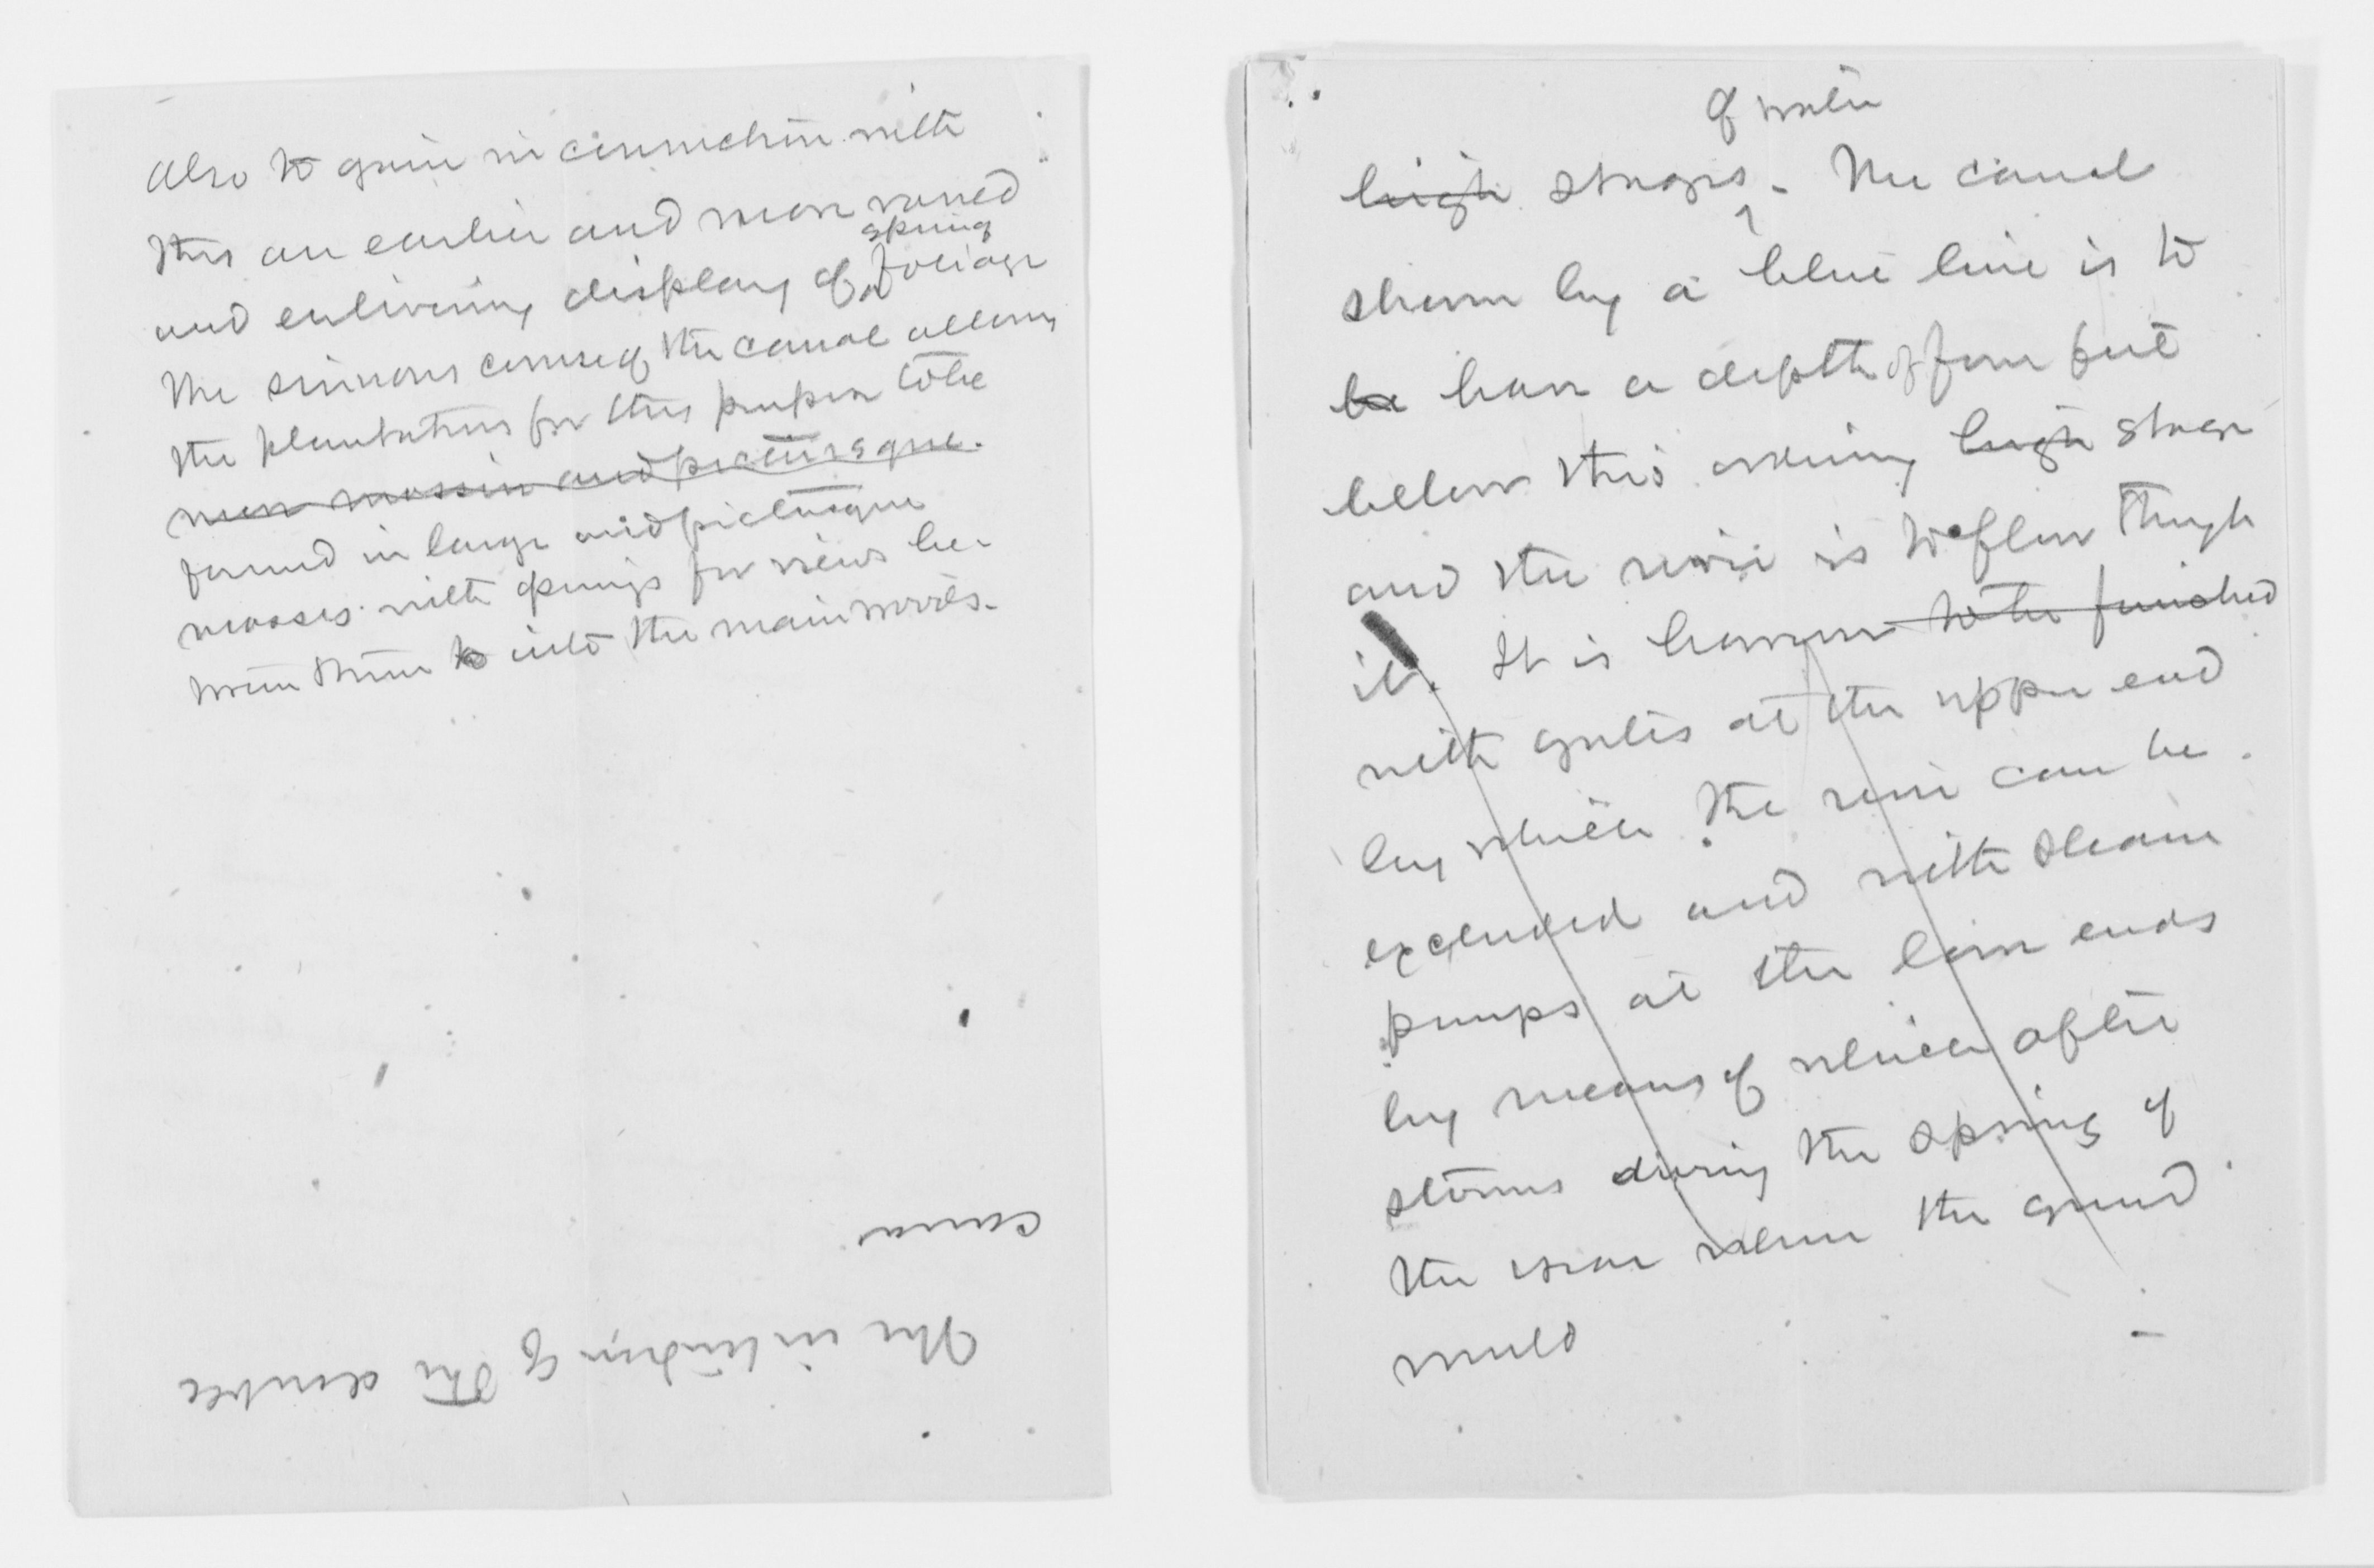 Also to gain in connection with
this an earlier and more varied
spring
and enlivening display of foliage
The sinuous course of the canal allows
the plantations for this purpose to be
more massive and picturesque.
formed in large and picturesque
masses with openings for views be-
tween them to into the main woods.
canal
The intention of the double
of water
high stages. The canal
shown by a blue line is to
be have a depth of four feet
below this ordinary high stage
and the river is to flow through
it. It is however to be furnished
with gates at the upper end
by which the river can be
excluded and with steam
pumps at the low ends
by means of which after
storms during the spring of
the year when the ground
would